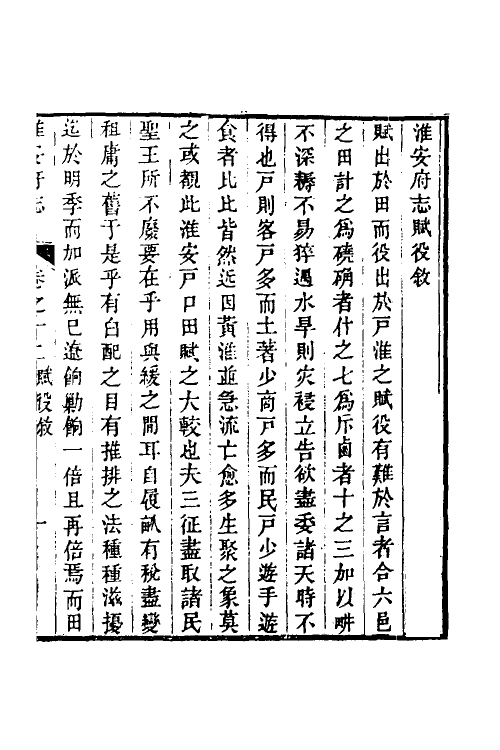 淮安府志賦役敘
賦出於田而役出於戶淮之賦役有難於言者合六邑
之田計之為磽确者什之七為斥鹵者十之三加以畊
不深耨不易猝遇水旱則灾祲立告欲盡委諸天時不
得也戶則客戶多而土著少商戶多而民戶少遊手遊
食者比比皆然近因黃淮並急流亡愈多生聚之象莫
之或覩此淮安戶口田賦之大較也夫三征盡取諸民
聖王所不廢要在乎用與緩之間耳自履畝有稅盡變
租庸之舊于是乎有白配之目有推排之法種種滋擾
迄於明季而加派無已遼餉勦餉一倍且再倍焉而田
淮安府志 卷之十二 賦役敘 一